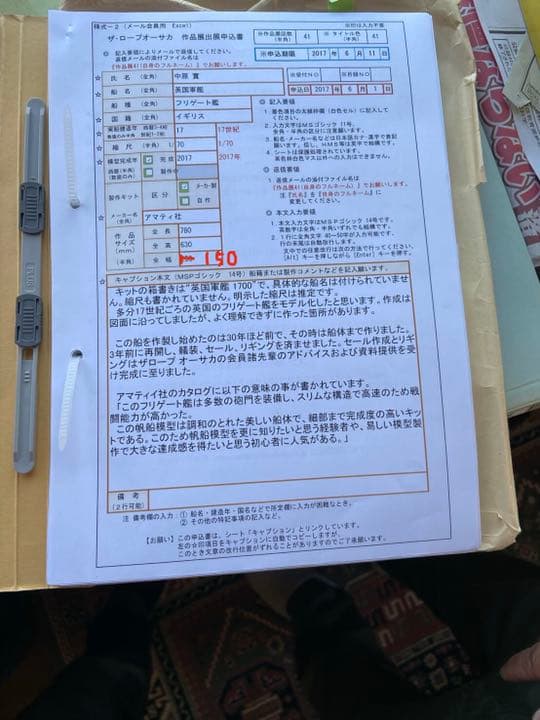 様式－2 (メール会員用 Excel)
※印は入力不要
ザ・ロープオーサカ 作品展出展申込書
※作品票区数 (半角) 41 ※ タイトル色 (半角) 41
◎ 記入要領によりメールで返信してください。
返信メールの添付ファイル名は
『作品展41(自身のフルネーム)』でお願いします。
※申込期限 2017 年 6 月 11 日
☆ 氏 名 (全角) 中原 寛
※受付ＮＯ ※名録ＮＯ
☆ 船 名 (全角) 英国軍艦
申込日 2017 年 6 月 1 日
☆ 船 種 (全角) フリゲート艦
☆ 国 籍 (全角) イギリス
実船建造年 西暦3~4桁 17 17世紀
☆ 縮 尺 (半角) 1/ 70 1/70
模型完成年 完 成 2017 2017年
西暦(半角) (数値のみ) 製作中
製作キット 区分 メーカ製
自 作
メーカー名 (全角) アマティ社
作 品 サイズ (mm) (半角)
全 長 780
全 高 630
全 幅 150
◎ 記入要領
1. 着色項目の太線枠欄(白色セル)に記入してください。
2. 入力文字はＭＳゴシック 11号。
全角・半角の区分に注意願います。
3. 船名・メーカー名などは日本語カナ・漢字で表記願います。但し、HMS等は英字で結構です。
4. シートは保護処理されています。
茶色枠白色マス以外への入力はできません。
◎ 返信要領
1. 返信メールの添付ファイル名は
『作品展41(自身のフルネーム)』でお願いします。
注『氏名』を『自身のフルネーム』に
変更してください。
◎ 本文入力要領
1. 本文入力文字はＭＳＰゴシック 14号です。
英数字は全角・半角いずれでも結構です。
2. 1行に全角文字 40~50字が入力可能です。
行の末尾は自動改行します。
文章途中での改行は次の方法で行ってください。
[Alt] キーを押しながら [Enter] キーを押す。
☆ キャプション本文 (MSPゴシック 14号) 船籍または製作コメントなどを記入願います。
キットの箱書きは“英国軍艦 1700”で、具体的な船名は付けられていません。縮尺も書かれていません。明示した縮尺は推定です。
多分17世紀ごろの英国のフリゲート艦をモデル化したと思います。作成は図面に沿ってしましたが、よく理解できずに作った箇所があります。
この船を作製し始めたのは30年ほど前で、その時は船体まで作りました。
3年前に再開し、艤装、セール、リギングを済ませました。セール作成とリギングはザロープ オーサカの会員諸先輩のアドバイスおよび資料提供を受け完成に至りました。
アマティイ社のカタログに以下の意味の事が書かれています。
「このフリゲート艦は多数の砲門を装備し、スリムな構造で高速のため戦闘能力が高かった。
この帆船模型は調和のとれた美しい船体で、細部まで完成度の高いキットである。このため帆船模型を更に知りたいと思う経験者や、易しい模型製作で大きな達成感を得たいと思う初心者に人気がある。」
備 考
(2行可能)
注 備考欄の入力：① 船名・建造年・国名などで所定欄に入力が困難なとき。
② その他の特記事項の記入など。
【お願い】この申込書は、シート「キャプション」とリンクしています。
左の☆印項目をキャプションに自動でコピーしますが、
このとき文章の改行位置がずれることがありますのでご了承願います。
PLUS